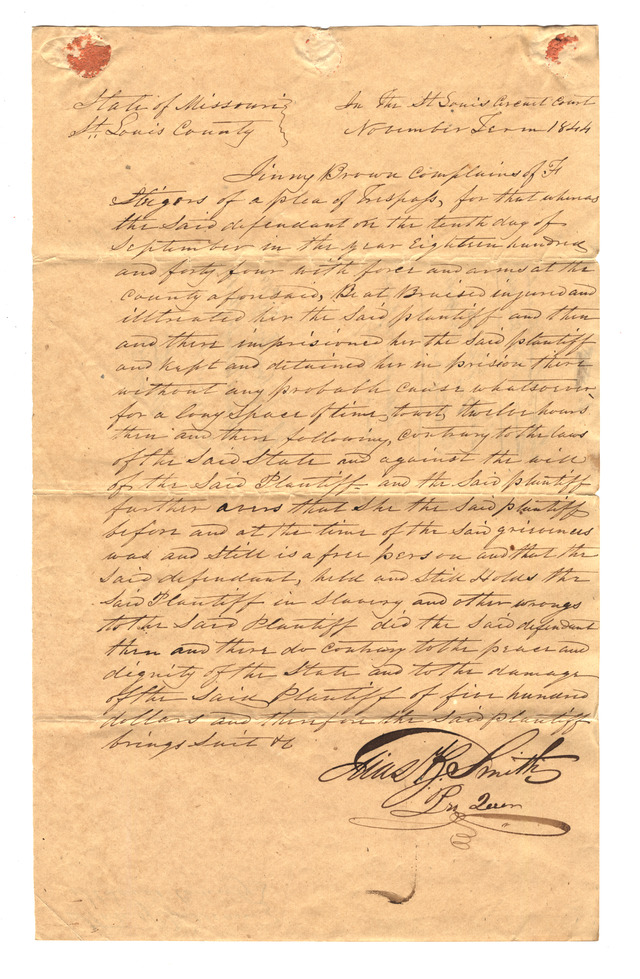 State of Missouri
St. Louis County
In The St Louis Circuit Court
November Term 1844
Jinny Brown Complains of F
Steigers of a plea of Trespass, for that whereas
the Said defendant on the tenth day of
September in the year Eighteen hundred
and forty four with force and arms at the
County aforesaid, Beat Bruised injured and
illtreated her the Said plantiff and then
and there imprisioned her the said plantiff
and kept and detained her in prision there
without any probable cause whatsoever,
for a long space of time, towit, twelve hours
then and there following, contrary to the laws
of the Said State and against the will
of the Said Plantiff and the Said plantiff
further avers that She the Said plantiff
before and at the time of the Said grievences
was and still is a free person and that the
Said defendant, held and Still Holds the
Said Plantiff in Slavery and other wrongs
to the Said Plantiff did the Said defendant
then and there do contrary to the peace and
dignity of the State and to the damage
of the Said Plantiff of five hundred
dollars and therefore the Said plantiff
brings Suit &c
Smith